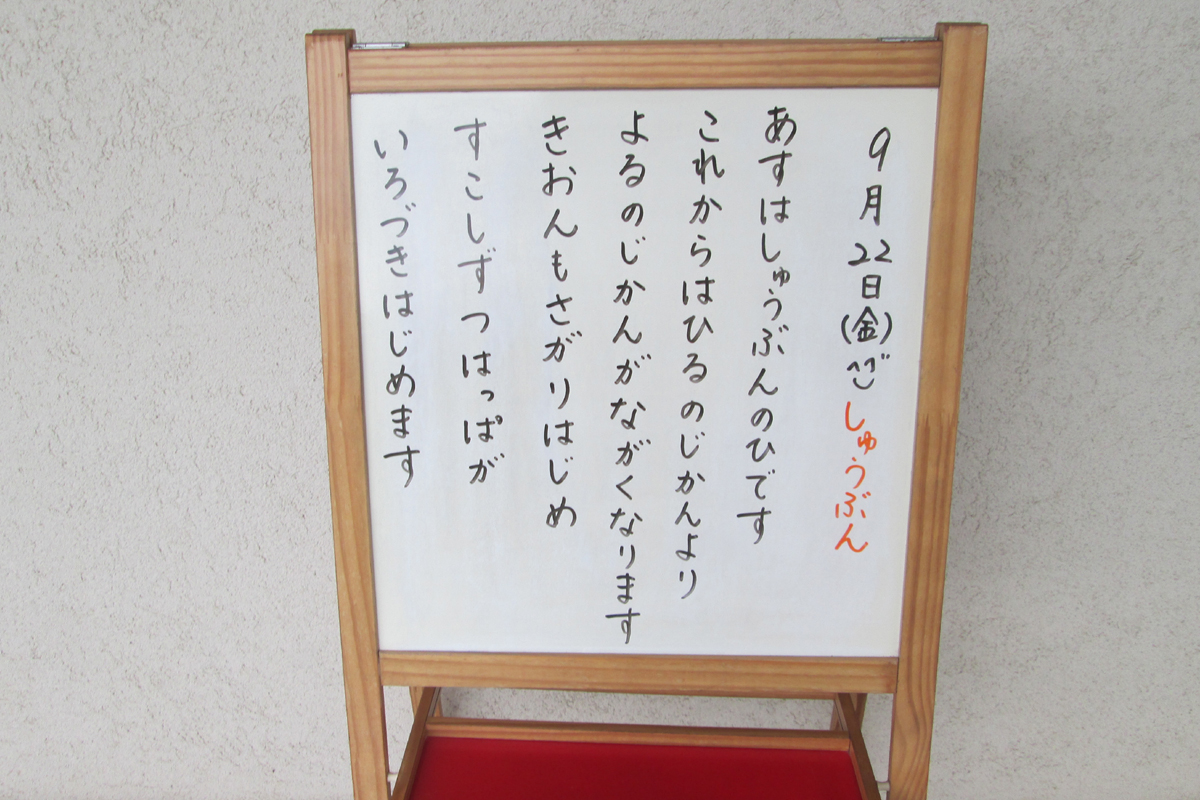 9月22日(金)へご しゅうぶん
あすはしゅうぶんのひです
これからはひるのじかんより
よるのじかんがながくなります
きおんもさがりはじめ
すこしずつはっぱが
いろづきはじめます